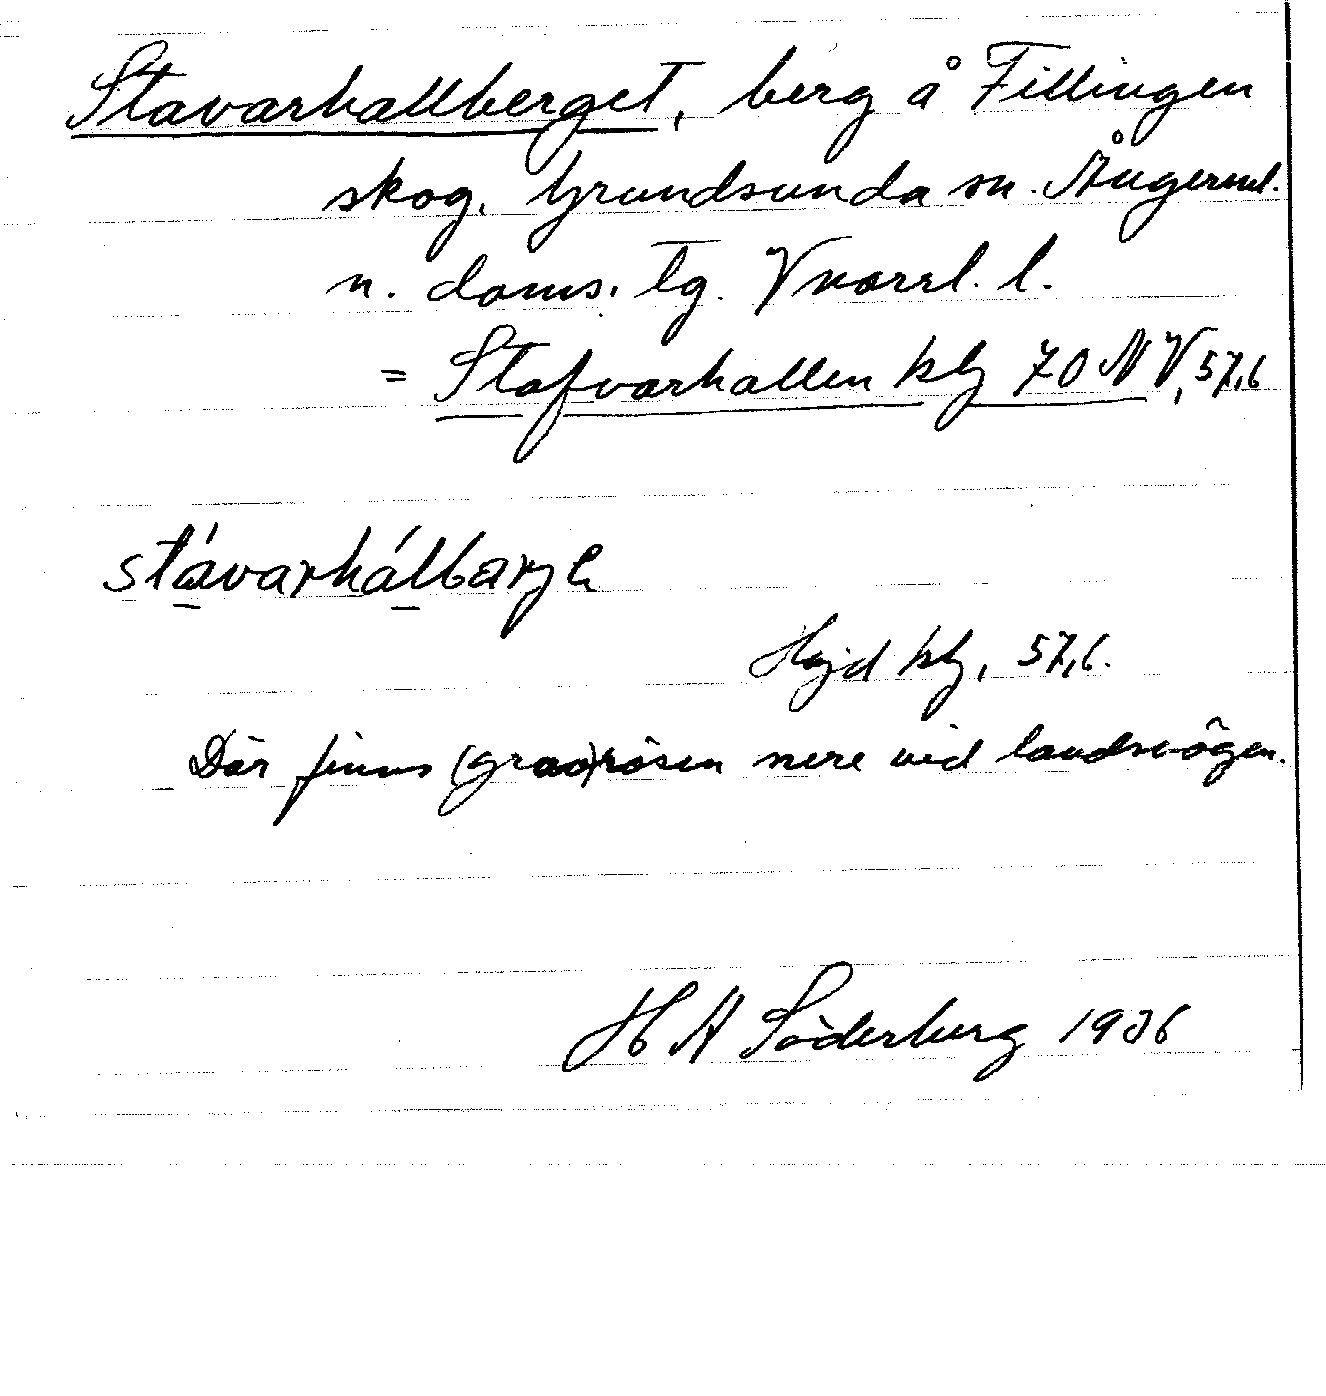 Stavarhallberget, berg å Fillingen
skog. Grundsunda sn. Ångerml.
n. doms. tg. Vnorrl. l.
= Stafvarhallen kbl 70 NV, 57,6
stávarhálbærje
Höjd kbl, 57,6.
Där finns (grav)rösen nere vid landsvägen.
H A Söderberg 1936